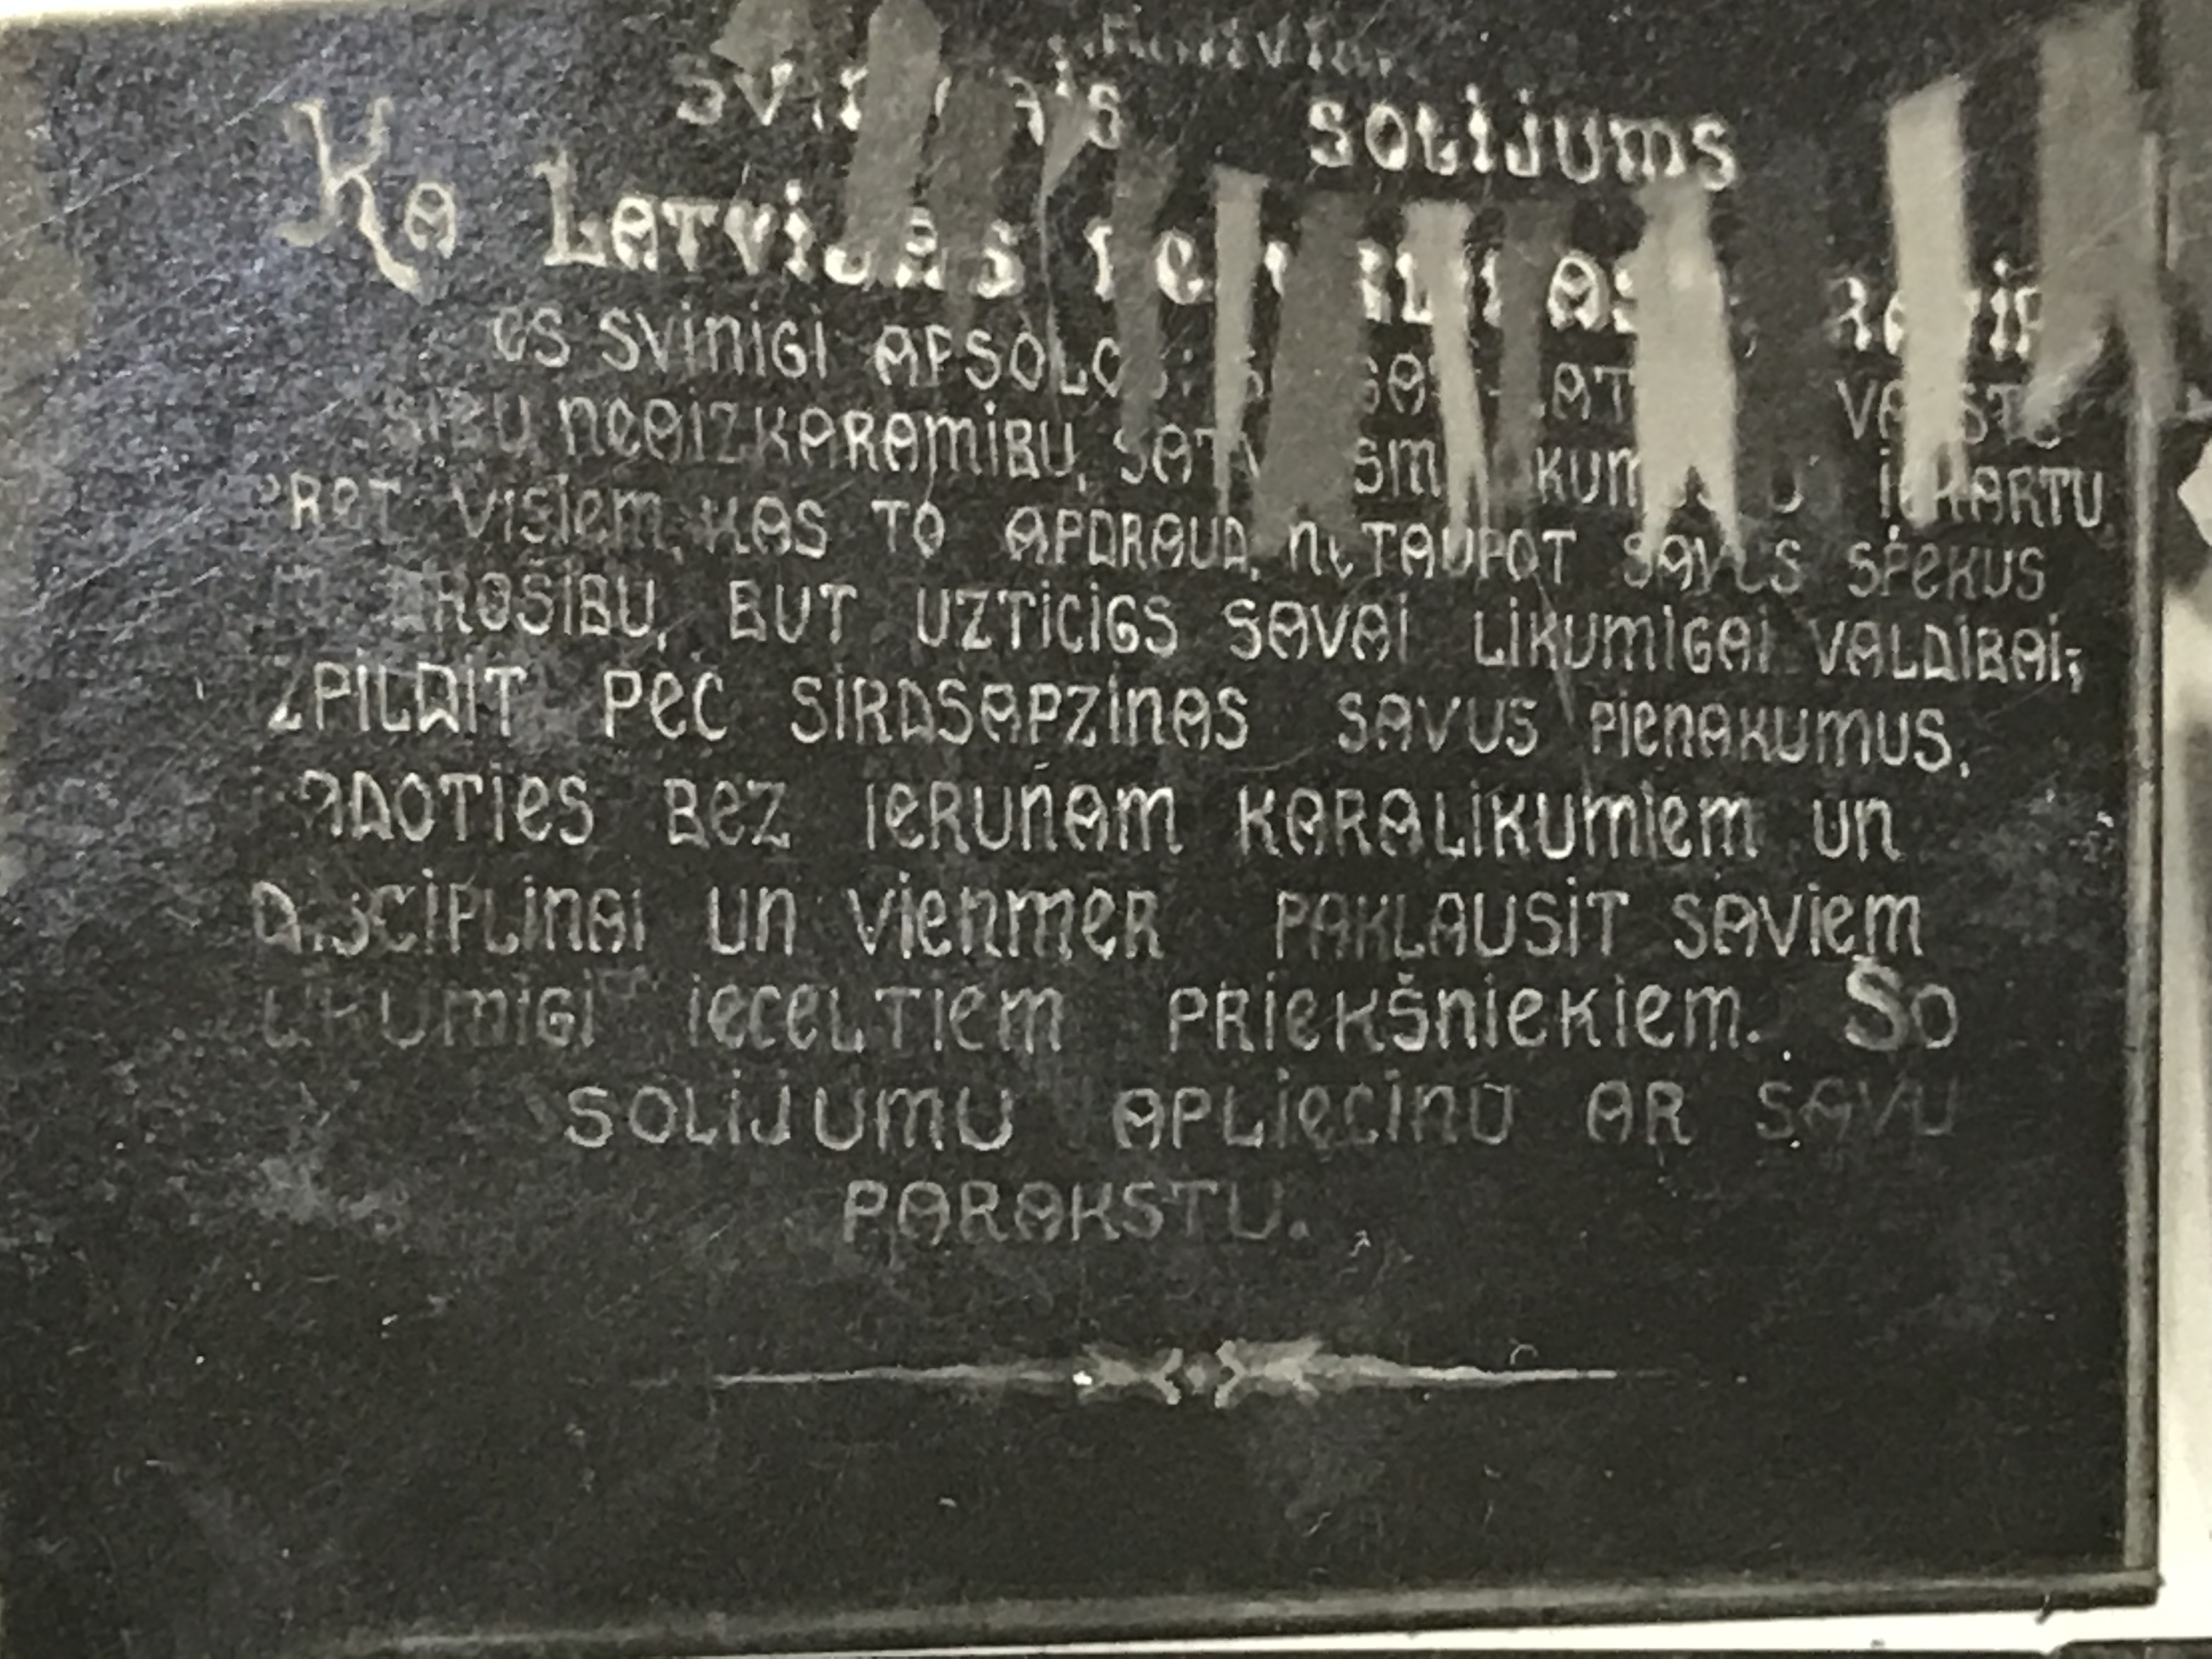 SOLIJUMS
Ka LATVIJAS
ES SVINIGI
NEAIZKARAMIBU,
PRET VISIEM, KAS TO APDRAUD, NETAUPOT SAVUS SPEKUS
DROŠIBU, BUT UZTICIGS SAVAI LIKUMIGAI VALDIBAI,
IZPILDIT PEC SIRDSAPZINAS SAVUS PIENAKUMUS,
PADOTIES BEZ IERUNAM KARALIKUMIEM UN
DISCIPLINAI UN VIENMER PAKLAUSIT SAVIEM
LIKUMIGI IECELTIEM PRIEKŠNIEKIEM. SO
SOLIJUMU APLIECINU AR SAVU
PARAKSTU.